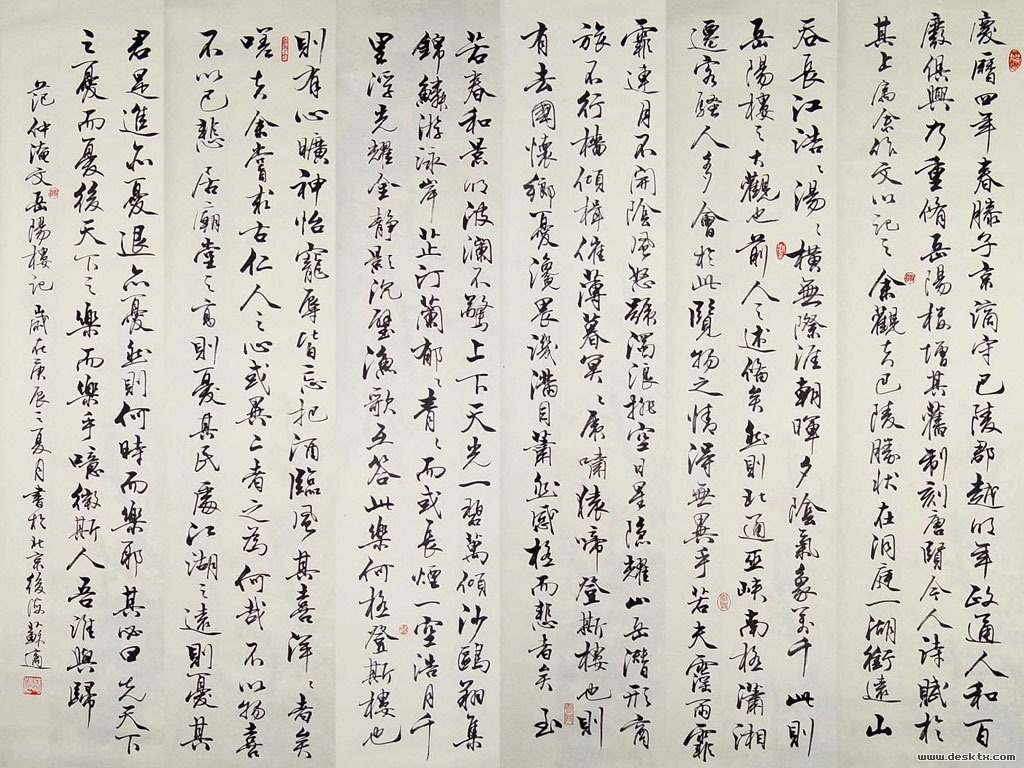 慶曆四年春滕子京謫守巴陵郡越明年政通人和百
廢俱興乃重脩岳陽樓增其舊制刻唐賢今人詩賦於
其上屬余作文以記之余觀夫巴陵勝狀在洞庭一湖銜遠山
吞長江浩〻湯〻橫無際涯朝暉夕陰氣象万千此則
岳陽樓之大觀也前人之述備矣然則北通巫峽南極瀟湘
遷客騷人多會於此覽物之情得無異乎若夫霪雨霏
霏連月不開陰風怒號濁浪排空日星隱耀山岳潛形商
旅不行檣傾楫摧薄暮冥〻虎嘯猿啼登斯樓也則
有去國懷鄉憂讒畏譏滿目蕭然感極而悲者矣至
若春和景明波瀾不驚上下天光一碧萬傾沙鷗翔集
錦鱗游泳岸芷汀蘭郁〻青〻而或長煙一空浩月千
里浮光耀金靜影沉璧漁歌互答此樂何極登斯樓也
則有心曠神怡寵辱皆忘把酒臨風其喜洋〻者矣
嗟夫余嘗求古仁人之心或異二者之為何哉不以物喜
不以己悲居廟堂之高則憂其民處江湖之遠則憂其
君是進亦憂退亦憂然則何時而樂耶其必曰先天下
之憂而憂後天下之樂而樂乎噫微斯人吾誰與歸
范仲淹文岳陽樓記歲在庚辰之夏月書於北京後海蘇適
www.desktx.com